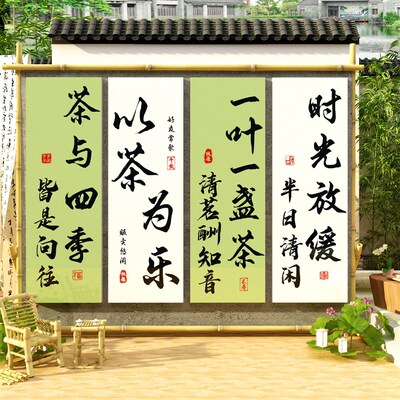 时光放缓
半日清闲
一叶一盏茶
清茗酬知音
好友常聚
以茶为乐
茶与四季
皆是向往